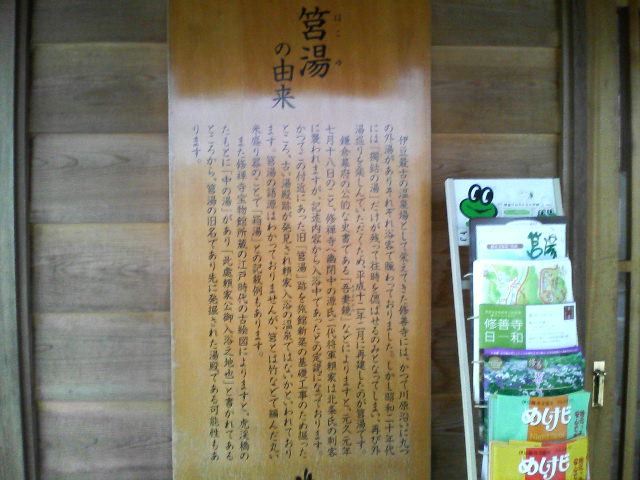 筥湯
はこ ゆ
の由来
伊豆最古の温泉場として栄えてきた修善寺には、かつて川原沿いに九つ
の外湯がありそれぞれ浴客で賑わっておりました。しかし昭和二十年代
には「獨鈷の湯」だけが残って往時を偲ばせるのみとなってしまい、再び外
湯巡りを楽しんでいただくため、平成十二年二月に再建したのが筥湯です。
鎌倉幕府の公的な史書である「吾妻鏡」などによりますと、元久元年
七月十八日のこと、修禅寺へ幽閉中の源氏二代将軍頼家は北条氏の刺客
に襲われますが、記述内容から入浴中であったとの定説になっております。
かつてこの付近にあった旧「筥湯」跡を旅館新築の基礎工事のため掘った
ところ、古い湯殿跡が発見され頼家入浴の温泉ではないかといわれており
ます。筥湯の語源はわかっておりませんが、筥とは竹などで編んだ丸い
米盛り器のことで「箱湯」との記載例もあります。
また修禅寺宝物館所蔵の江戸時代の古絵図によりますと、虎渓橋の
たもとに「中の湯」があり「此處頼家公御入浴之地也」と書かれてある
ところから、筥湯の旧名であり先に発掘された湯殿である可能性もあ
ります。
筥湯
修善寺
日和
めしけビ
めしけビ